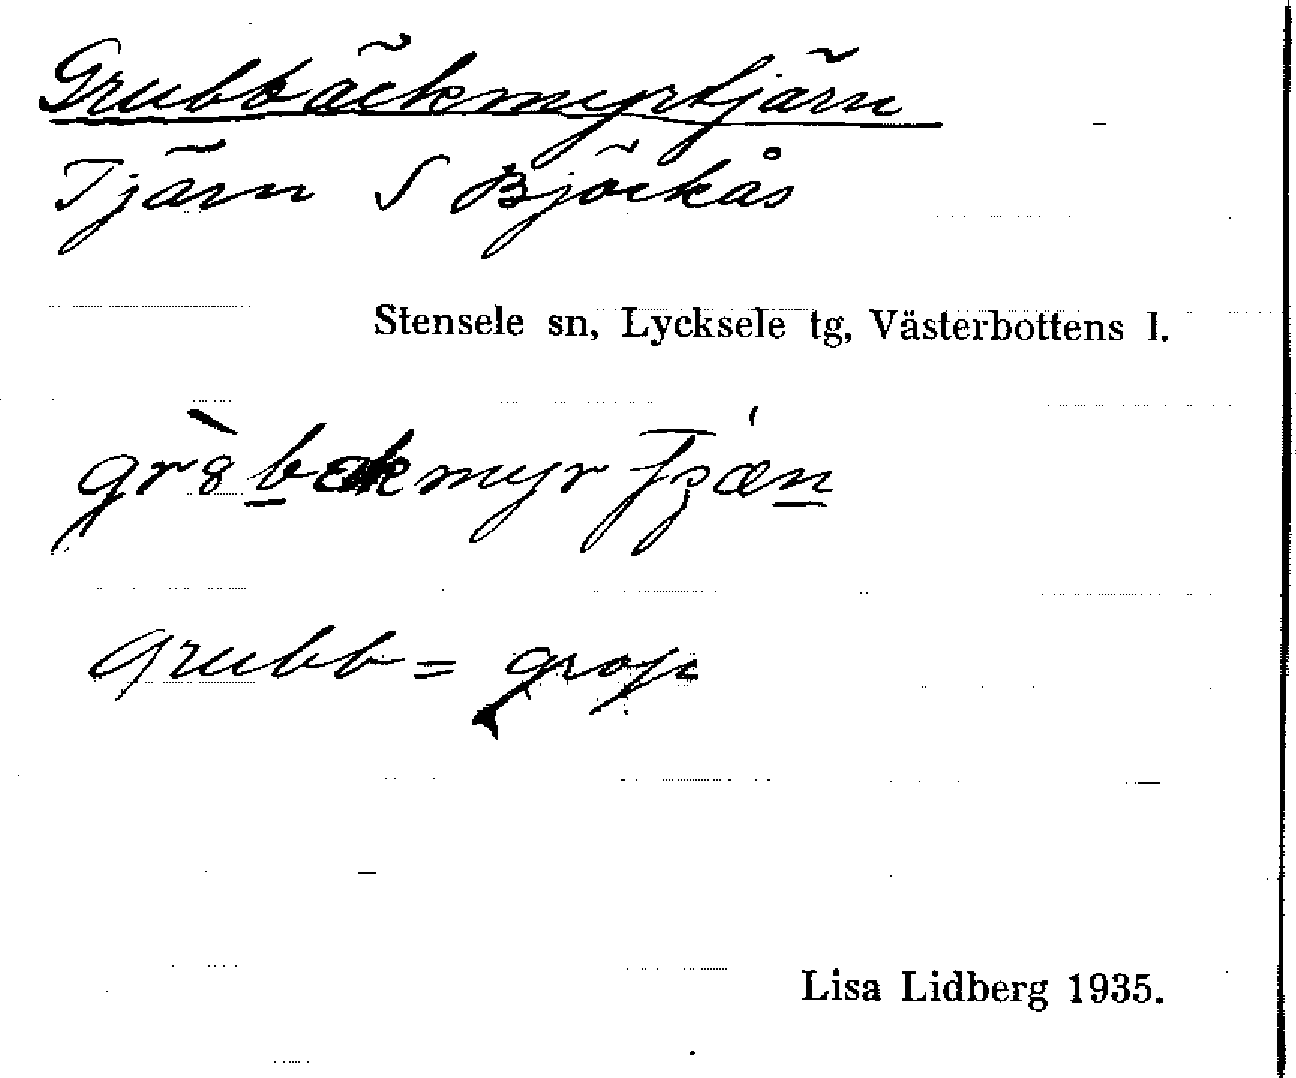 Grubbäckmyrtjärn
Tjärn S Björkås
Stensele sn, Lycksele tg, Västerbottens l.
Grubb = grop
Lisa Lidberg 1935.